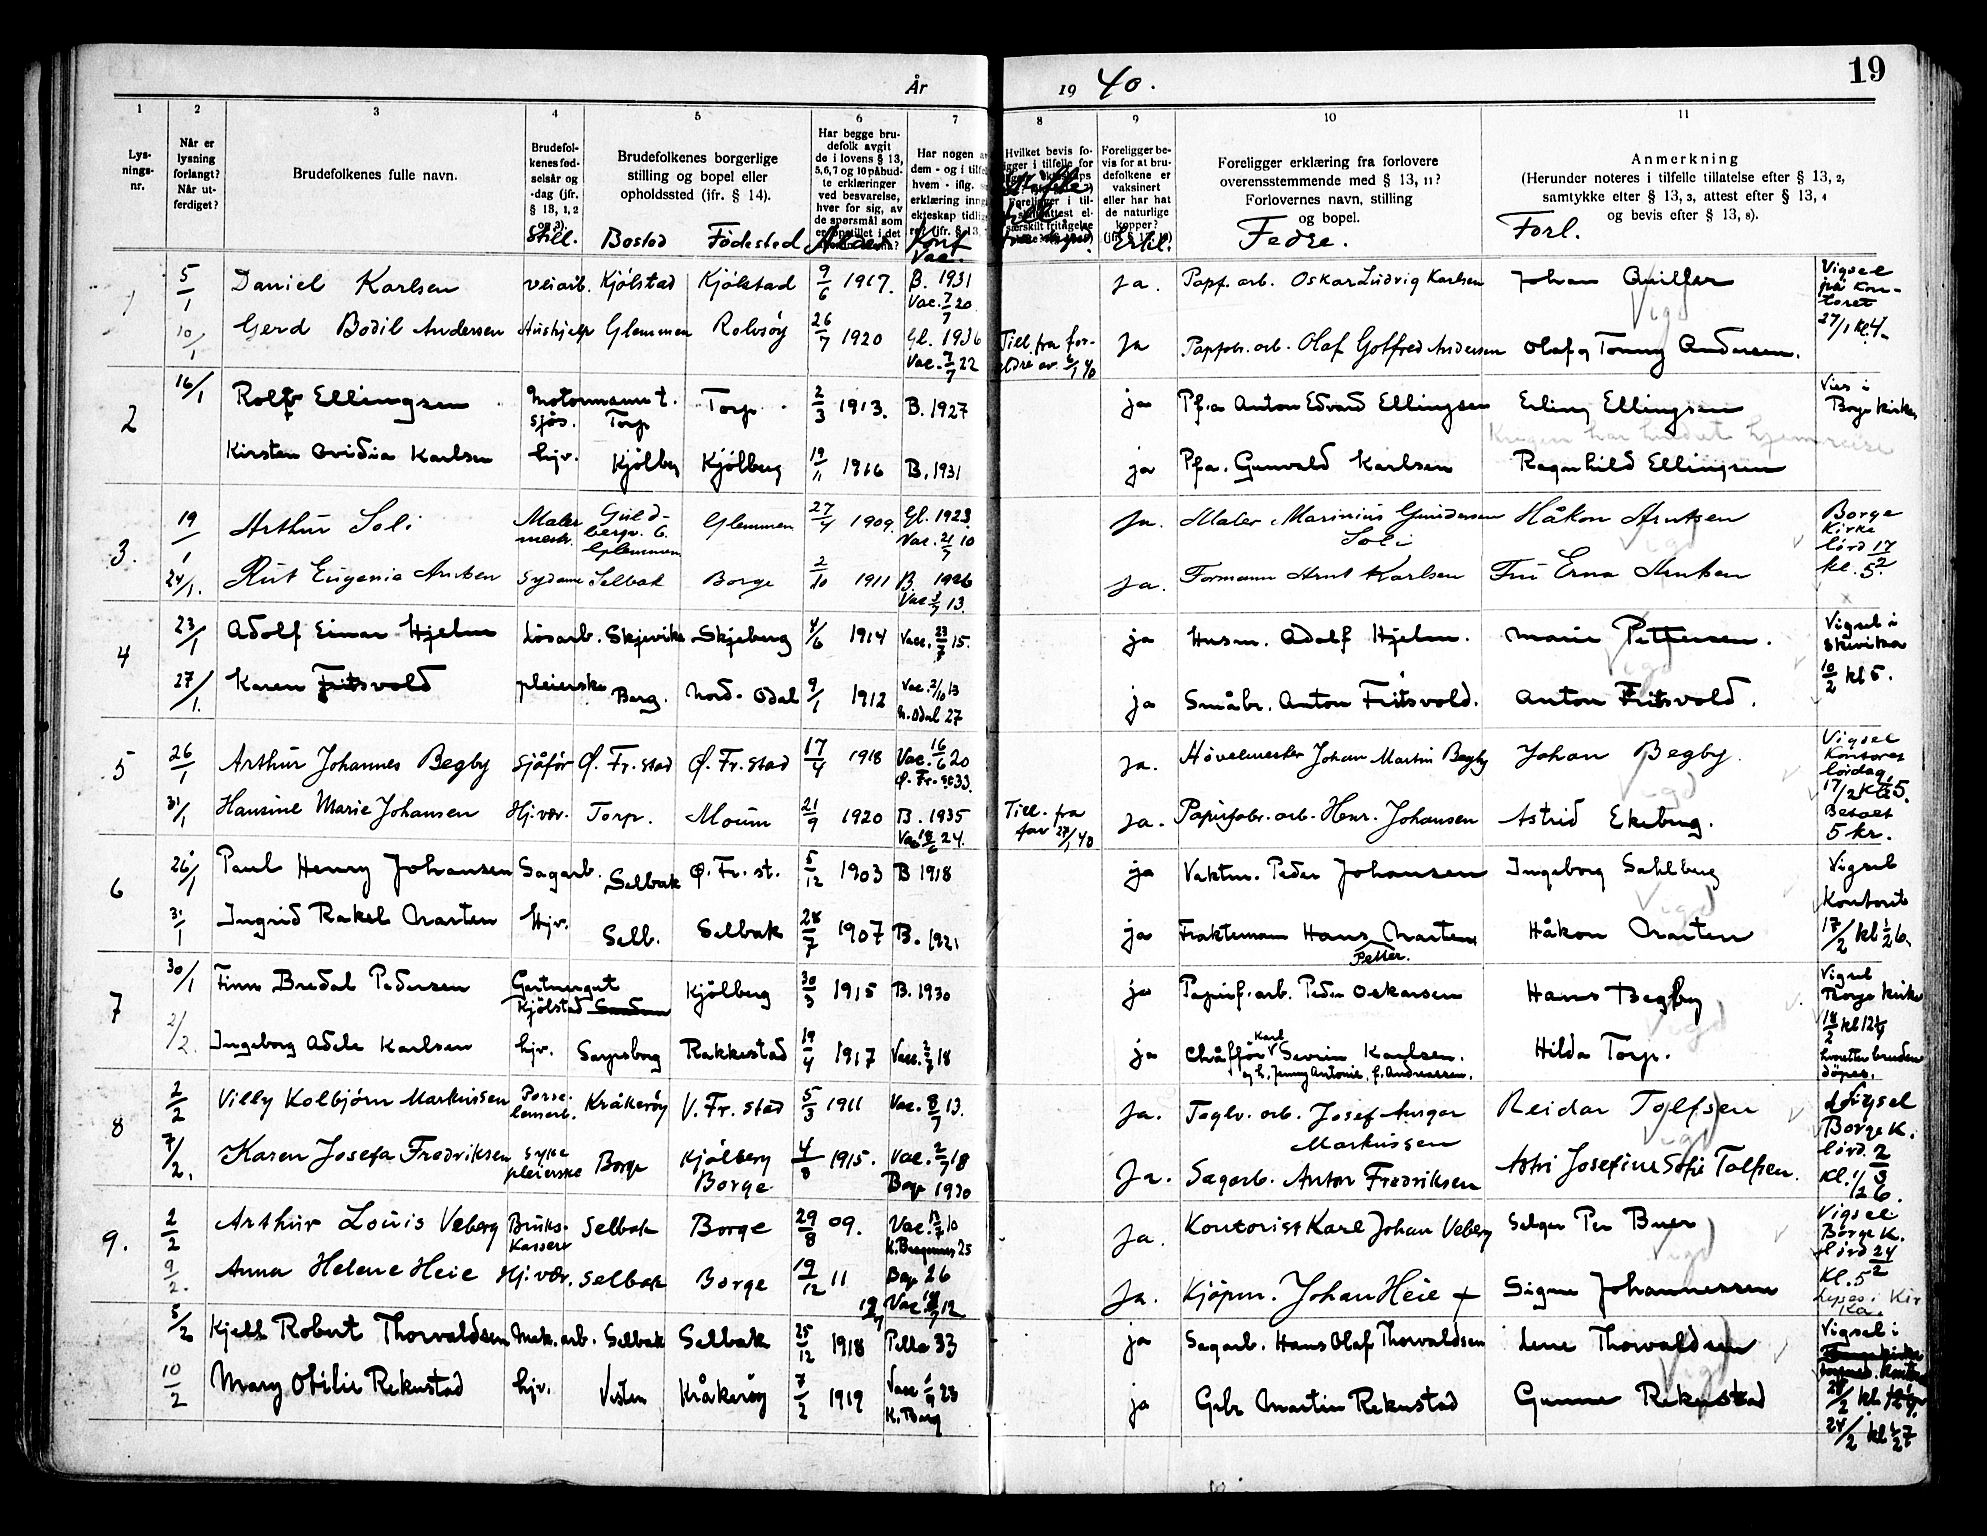 År 19 40.
19
1 2 3 4 5 6 7 8 9 10 11
Lys-
nings-
nr.
Når er
lysning
forlangt?
Når ut-
ferdiget?
Brudefolkenes fulle navn.
Brudefol-
kenes fød-
selsår og
-dag (jfr.
§ 13, 1, 2
Still.
Brudefolkenes borgerlige
stilling og bopel eller
opholdssted (jfr. § 14).
Bosted Födested
Har begge bru-
defolk avgit
de i lovens § 13,
5, 6, 7 og 10 påbud-
te erklæringer
ved besvarelse,
hver for sig, av
de spørsmål som
Har nogen a
dem - og i tilfe
hvem - iflg.
erklæring inng
ekteskap tidlig
Konf
Vac.
Hvilket bevis fo-
Foreligger be-
vis for at bru-
defolkene er
vaksinert
eller har hat
de naturlige
kopper?
Foreligger erklæring fra forlovere
overensstemmende med § 13, 11?
Forlovernes navn, stilling
og bopel.
Fedre.
Anmerkning
(Herunder noteres i tilfelle tillatelse efter § 13, 2,
samtykke efter § 13, 3, attest efter § 13, 4
og bevis efter § 13, 8).
Forl.
1 5/1 Daniel Karlsen veiarb. Kjölstad Kjölstad 9/6 1917. B. 1931 Vac. 7/7 20 ja. Papf. arb. Oskar Ludvig Karlsen Johan
Vigsel
på Kon-
toret
27/1 kl. 4
10/1 Gerd Bodil Andersen Hushjelp Glemmen Rolvsöy 26/7 1920 Gl. 1936 Vac. 7/7 22 Till. fra for-
eldre av 6/1 40 ja Papfabr. arb. Olaf Gotfred Andersen Olaf og Tonny Andersen.
Vigd
2 16/1 Rolf Ellingsen Motormann t.
sjös. Torp Torp. 2/3 1913. B. 1927 ja Pf.a Anton Edvard Ellingsen Erling Ellingsen
Vies i
Borge Kirke
Krigen har hindret hjemreise
Kirsten Ovidia Karlsen hjv. Kjölberg Kjölberg 19/11 1916 B. 1931 ja Pfa. Gunvald Karlsen Ragnhild Ellingsen
3. 19/1 Arthur Soli Maler
mestr. Guld-
bergv. 6.
Glemmen Glemmen 27/4 1909. Gl. 1923. Vac. 21/7 10 ja. Maler Marinius Gundersen
Soli Håkon Arntzen
Vigd
Borge
Kirke
lörd 17/2
kl. 5
24/1. Rut Eugenie Arntzen Sydame Selbak Borge 2/10 1911 B. 1926 Vac 3/7 13. ja. Formann Arnt Karlsen Fru Erna Arntzen
4 23/1 Adolf Einar Hjelm Lösarb. Skjevika Skjeberg 4/6 1914 Vac. 23/7 15. ja Husm. Adolf Hjelm. Marie Pettersen.
Vigd
Vigsel i
Skivika
10/2 kl 5.
27/1. Karen Fritsvold pleierske Borg. Nord-Odal 9/1 1912 Vac. 2/10 13
N. Odal 27 ja Småbr. Anton Fritsvold. Anton Fritsvold.
5 26/1 Arthur Johannes Begby Sjåför Ö. Fr. stad Ö. Fr. stad 17/4 1918 Vac. 16/6 20
Ö. Fr. st 33. ja. Hövelmester Johan Martin Begby Johan Begby.
Vigd
Vigsel
Kontoret
lördag
17/2 Kl 5.
31/1 Hansine Marie Johansen Hj. vær. Torp. Moum 21/9 1920 B. 1935
Vac 18/6 24. Till. fra
far 27/1 40 ja. Papirfabr. arb. Henr. Johansen Astrid Ekeberg.
Betalt
5 kr.
6 26/1 Paul Henry Johansen Sagarb. Selbak Ö. Fr. st. 5/12 1903 B 1918 ja Vaktm. Peder Johansen Ingeborg Sahlberg
Vigd
Vigsel
Kontoret
17/2 kl 1/2 6.
31/1 Ingrid Rakel Narten Hjv. Selb. Selbak 28/7 1907 B. 1921 ja Fraktemann Hans Narten
Petter. Håkon Narten
7 30/1 Finn Bredal Pedersen Gartnergut
Kjölstad Kjölberg 30/3 1915 B. 1930 ja Papirf. arb. Peder Oskarsen Hans Begby
Vigd
Vigsel
Borge Kirke
18/2
2/2. Ingeborg Adele Karlsen hjv. Sarpsborg Rakkestad 19/4 1917 Vacc. 2/7 18 ja Chåfför Karl Severin Karlsen.
og h. Jenny Antonie, f. Andreassen. Hilda Torp.
hvoretter bruden
döpes.
8 2/2 Villy Kolbjörn Markussen Porse-
lensarb. Kråkeröy V. Fr. stad 5/3 1911 Vac. 8/7 13. ja. Teglv. arb. Josef Ansgar
Markussen Reidar Tolfsen
Vigd
Vigsel
Borge K.
lörd. 2/3
Kl. 1/2 6.
7/2. Karen Josefa Fredriksen Syke
pleierske Borge Kjölberg
Borge 4/8 1915. Vac. 2/7 18
Borge 1930 ja. Sagarb. Anton Fredriksen Astri Josefine Sofie Tolfsen.
9. 2/2 Arthur Louis Veberg Bruks-
Kasserer Selbak Borge 29/8 09. Vac. 13/7 10 ja. Kontorist Karl Johan Veberg Selger Per Buer
Vigd
Vigsel
Borge K.
lörd 24/2
Kl. 5
9/2. Anna Helene Heie Hj. vær. Selbak Borge 19/12 11 Borge 26
Vac. 12 ja. Kjöpm. Johan Heie + Signe Johannessen
5/2 Kjell Robert Thorvaldsen Mek. arb. Selbak Selbak 25/12 1918 Pella 33 ja Sagarb. Hans Olaf Thorvaldsen Lene Thorvaldsen
Vigd
Vigsel i
10/2 Mary Otilie Rekustad hjv. Visten Kråkeröy 7/2 1919 Vacc 1/9 23
K. Borg ja Gbr Martin Rekustad Gunne Rekustad
24/2 kl 1/2 7